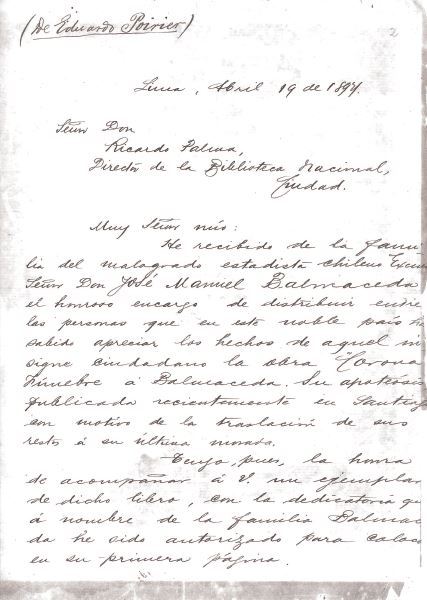 (De Eduardo Poirier)
2
Lima, Abril 19 de 1897.
Señor Don
Ricardo Palma,
Director de la Biblioteca Nacional,
Ciudad.
Muy Señor mío:
He recibido de la fami-
lia del malogrado estadista chileno Excmo
Señor Don José Manuel Balmaceda
el honroso encargo de distribuir entre
las personas que en este noble país han
sabido apreciar los hechos de aquel in-
signe ciudadano la obra "Corona
Fúnebre á Balmaceda. Su apoteósis
publicada recientemente en Santiago
con motivo de la traslación de sus
restos á su última morada.
Tengo, pues, la honra
de acompañar á V. un ejemplar
de dicho libro, con la dedicatoria que
á nombre de la familia Balmace
da he sido autorizado para coloca
en su primera página.